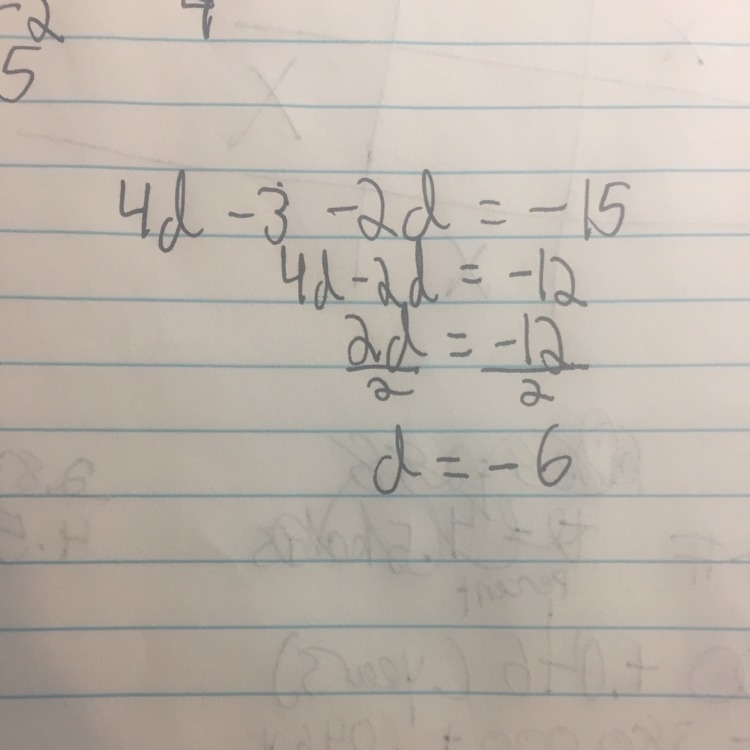 -2 4
5
4d - 3 - 2d = -15
4d - 2d = -12
2d/2 = -12/2
d = -6